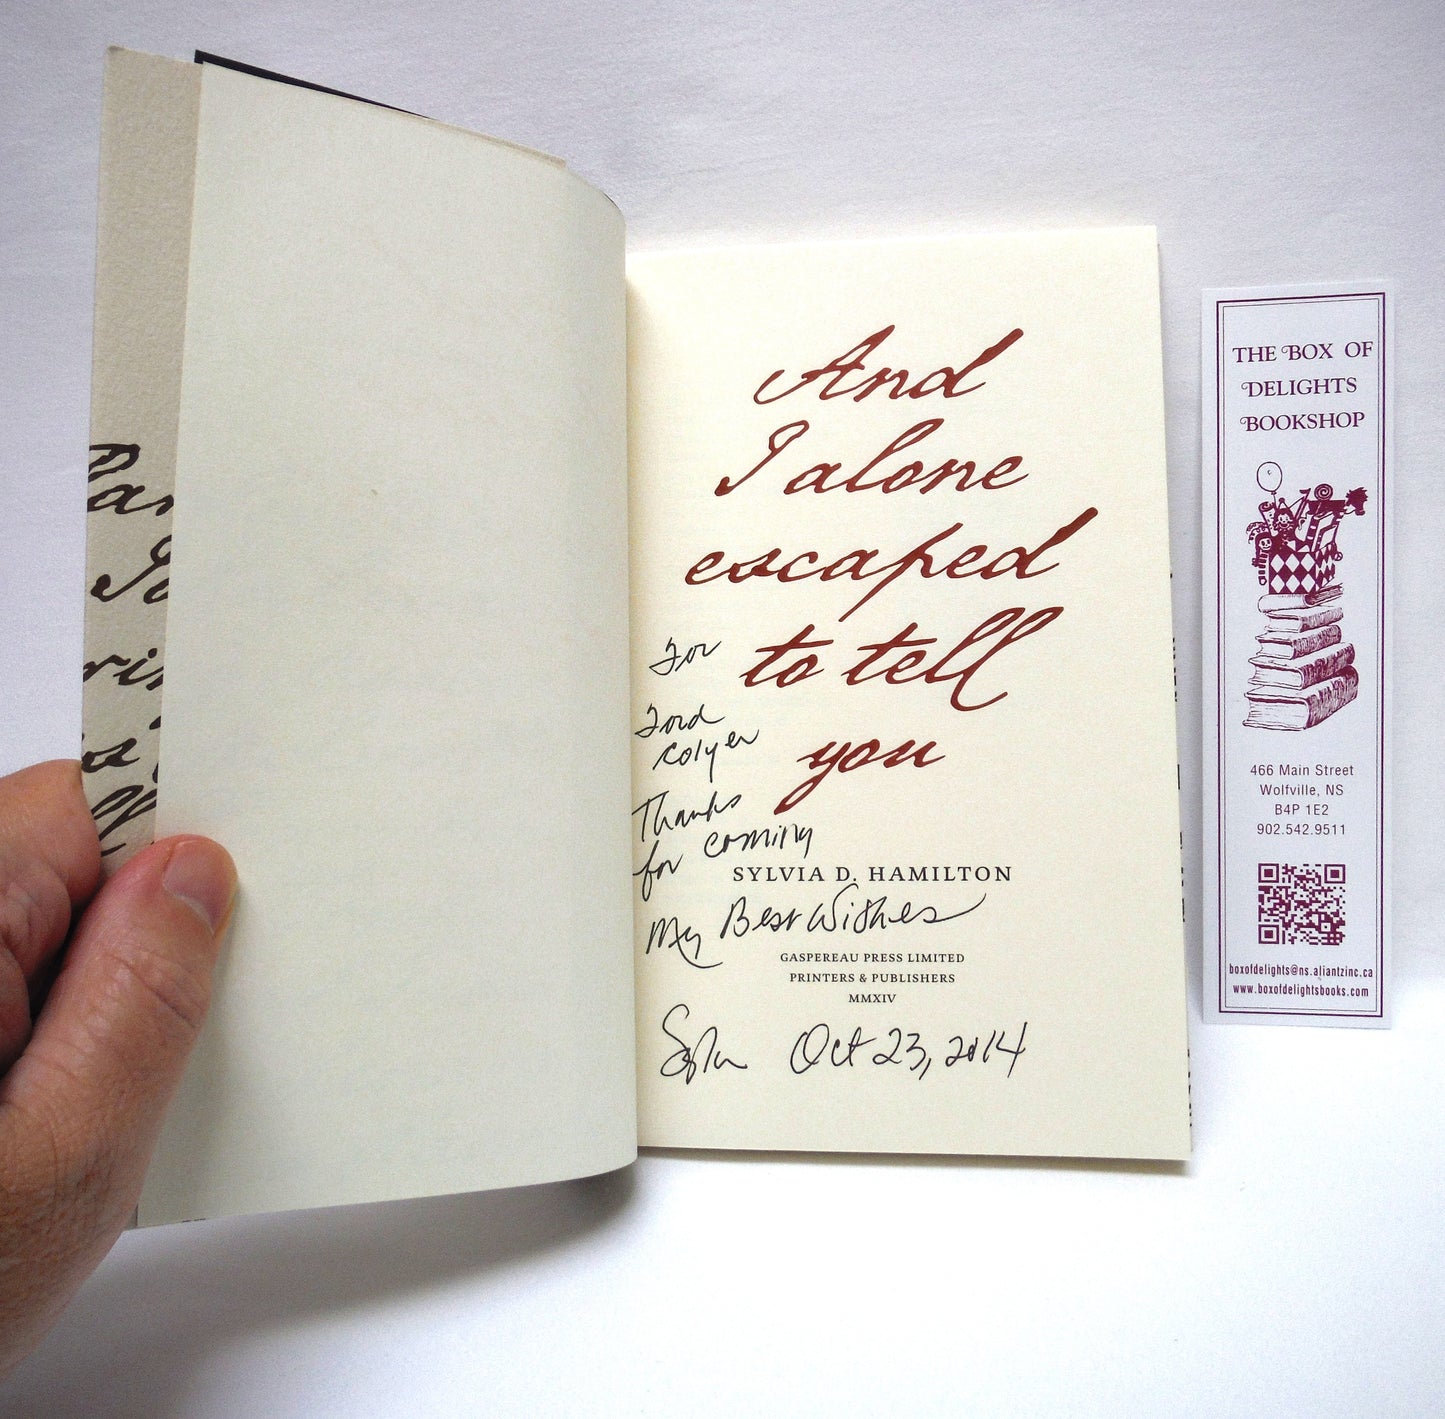 And
I alone
escaped
to tell
you
For
Ford
Colyer
Thanks
for coming
SYLVIA D. HAMILTON
My Best Wishes
GASPEREAU PRESS LIMITED
PRINTERS & PUBLISHERS
MMXIV
Sylvia Oct 23, 2014
THE BOX OF
DELIGHTS
BOOKSHOP
466 Main Street
Wolfville, NS
B4P 1E2
902.542.9511
boxofdelights@ns.aliantzinc.ca
www.boxofdelightsbooks.com